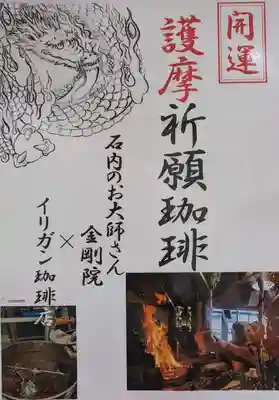 開運
護摩祈願珈琲
石内のお大師さん
金剛院
×
イリガン珈琲店